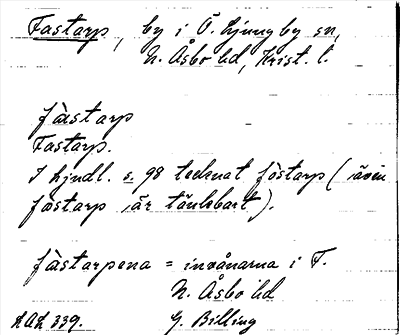 Fastarp, by i Ö. Ljungby sn,
N. Åsbo hd, Krist. l.
fàstarp
Fastarp.
I Ljndl. s. 98 tecknat fòstarp (även
fæstarp är tänkbart).
fàstarpena = invånarna i F.
N. Åsbo hd
G. Billing